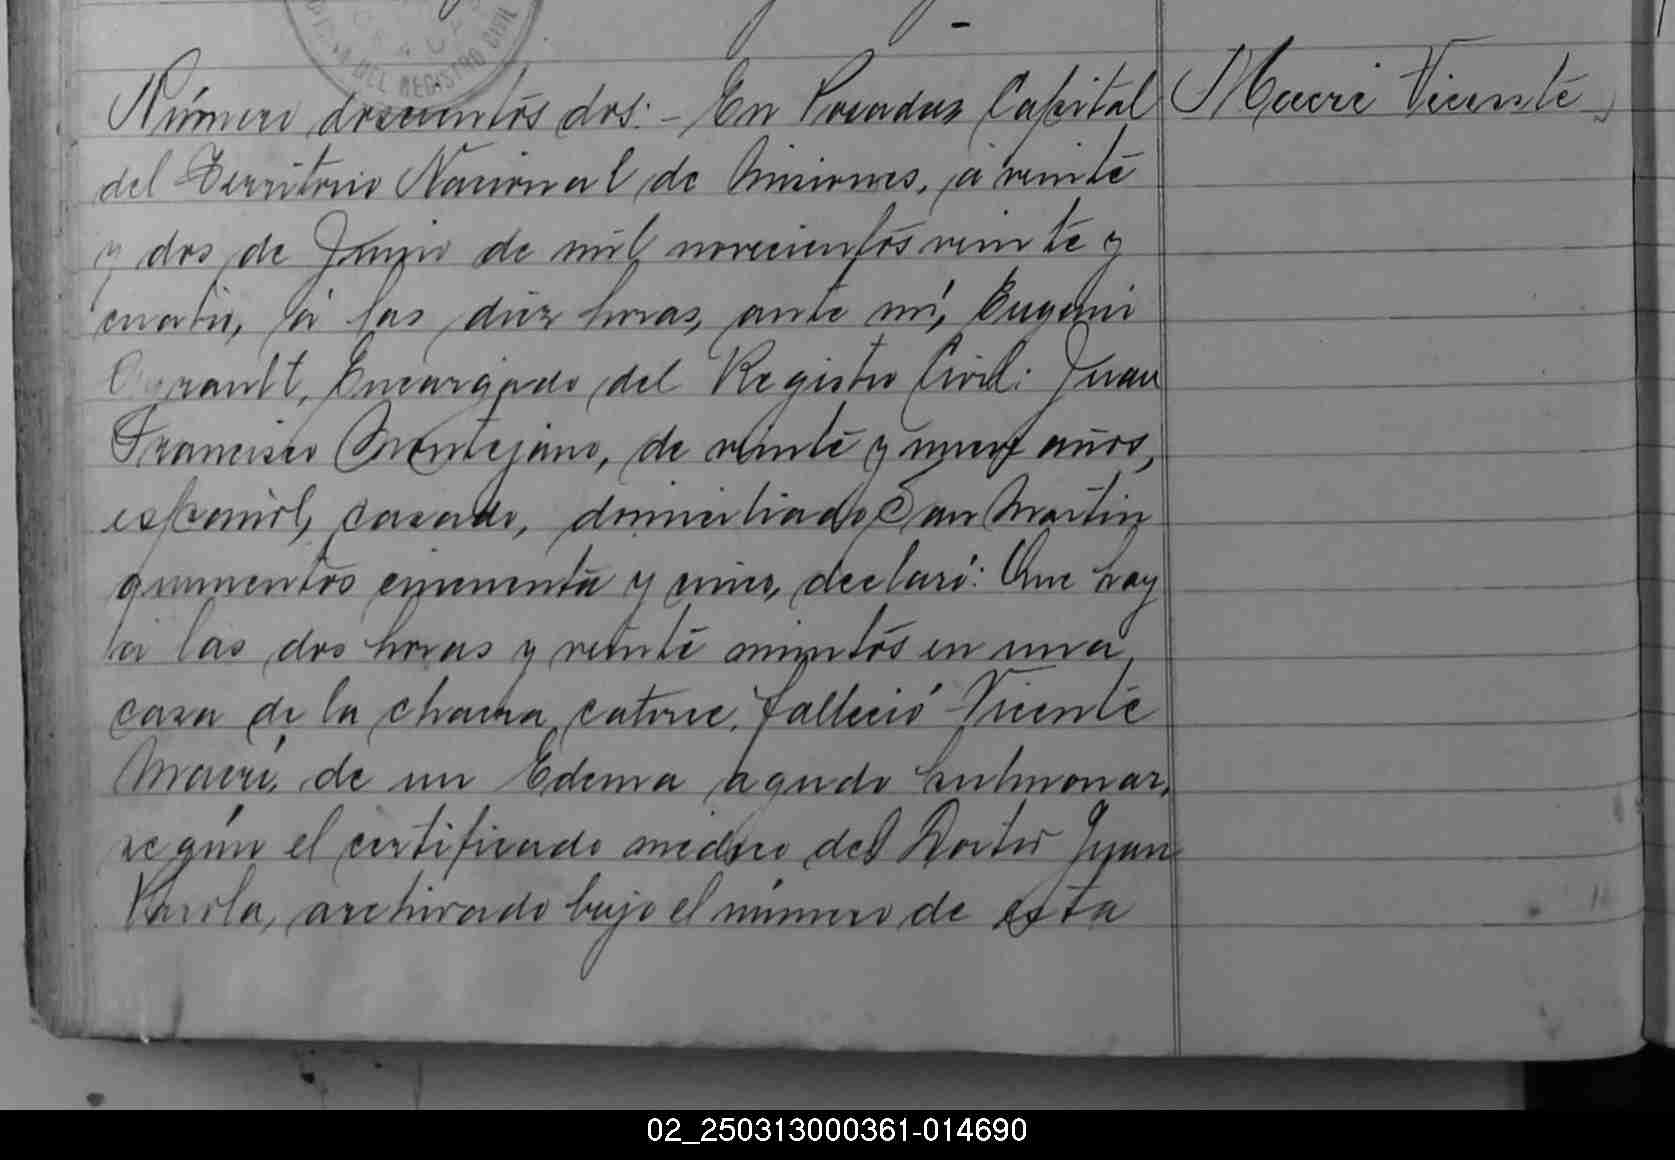 DEL REGISTRO CIVIL
Número doscientos dos: - En Posadas Capital
Macri Vicente
del Territorio Nacional de Misiones, á veinte
y dos de Junio de mil novecientos veinte y
cuatro, á las diez horas, ante mí, Eugenio
Encargado del Registro Civil: Juan
Francisco Montejano, de veinte y nueve años,
español, casado, domiciliado San Martin
quinientos cincuenta y cinco, declaró: Que hoy
á las dos horas y veinte minutos en una
casa de la chacra catorce, falleció Vicente
Macri, de un Edema agudo pulmonar,
según el certificado médico del Doctor Juan
archivado bajo el número de esta
02_250313000361-014690